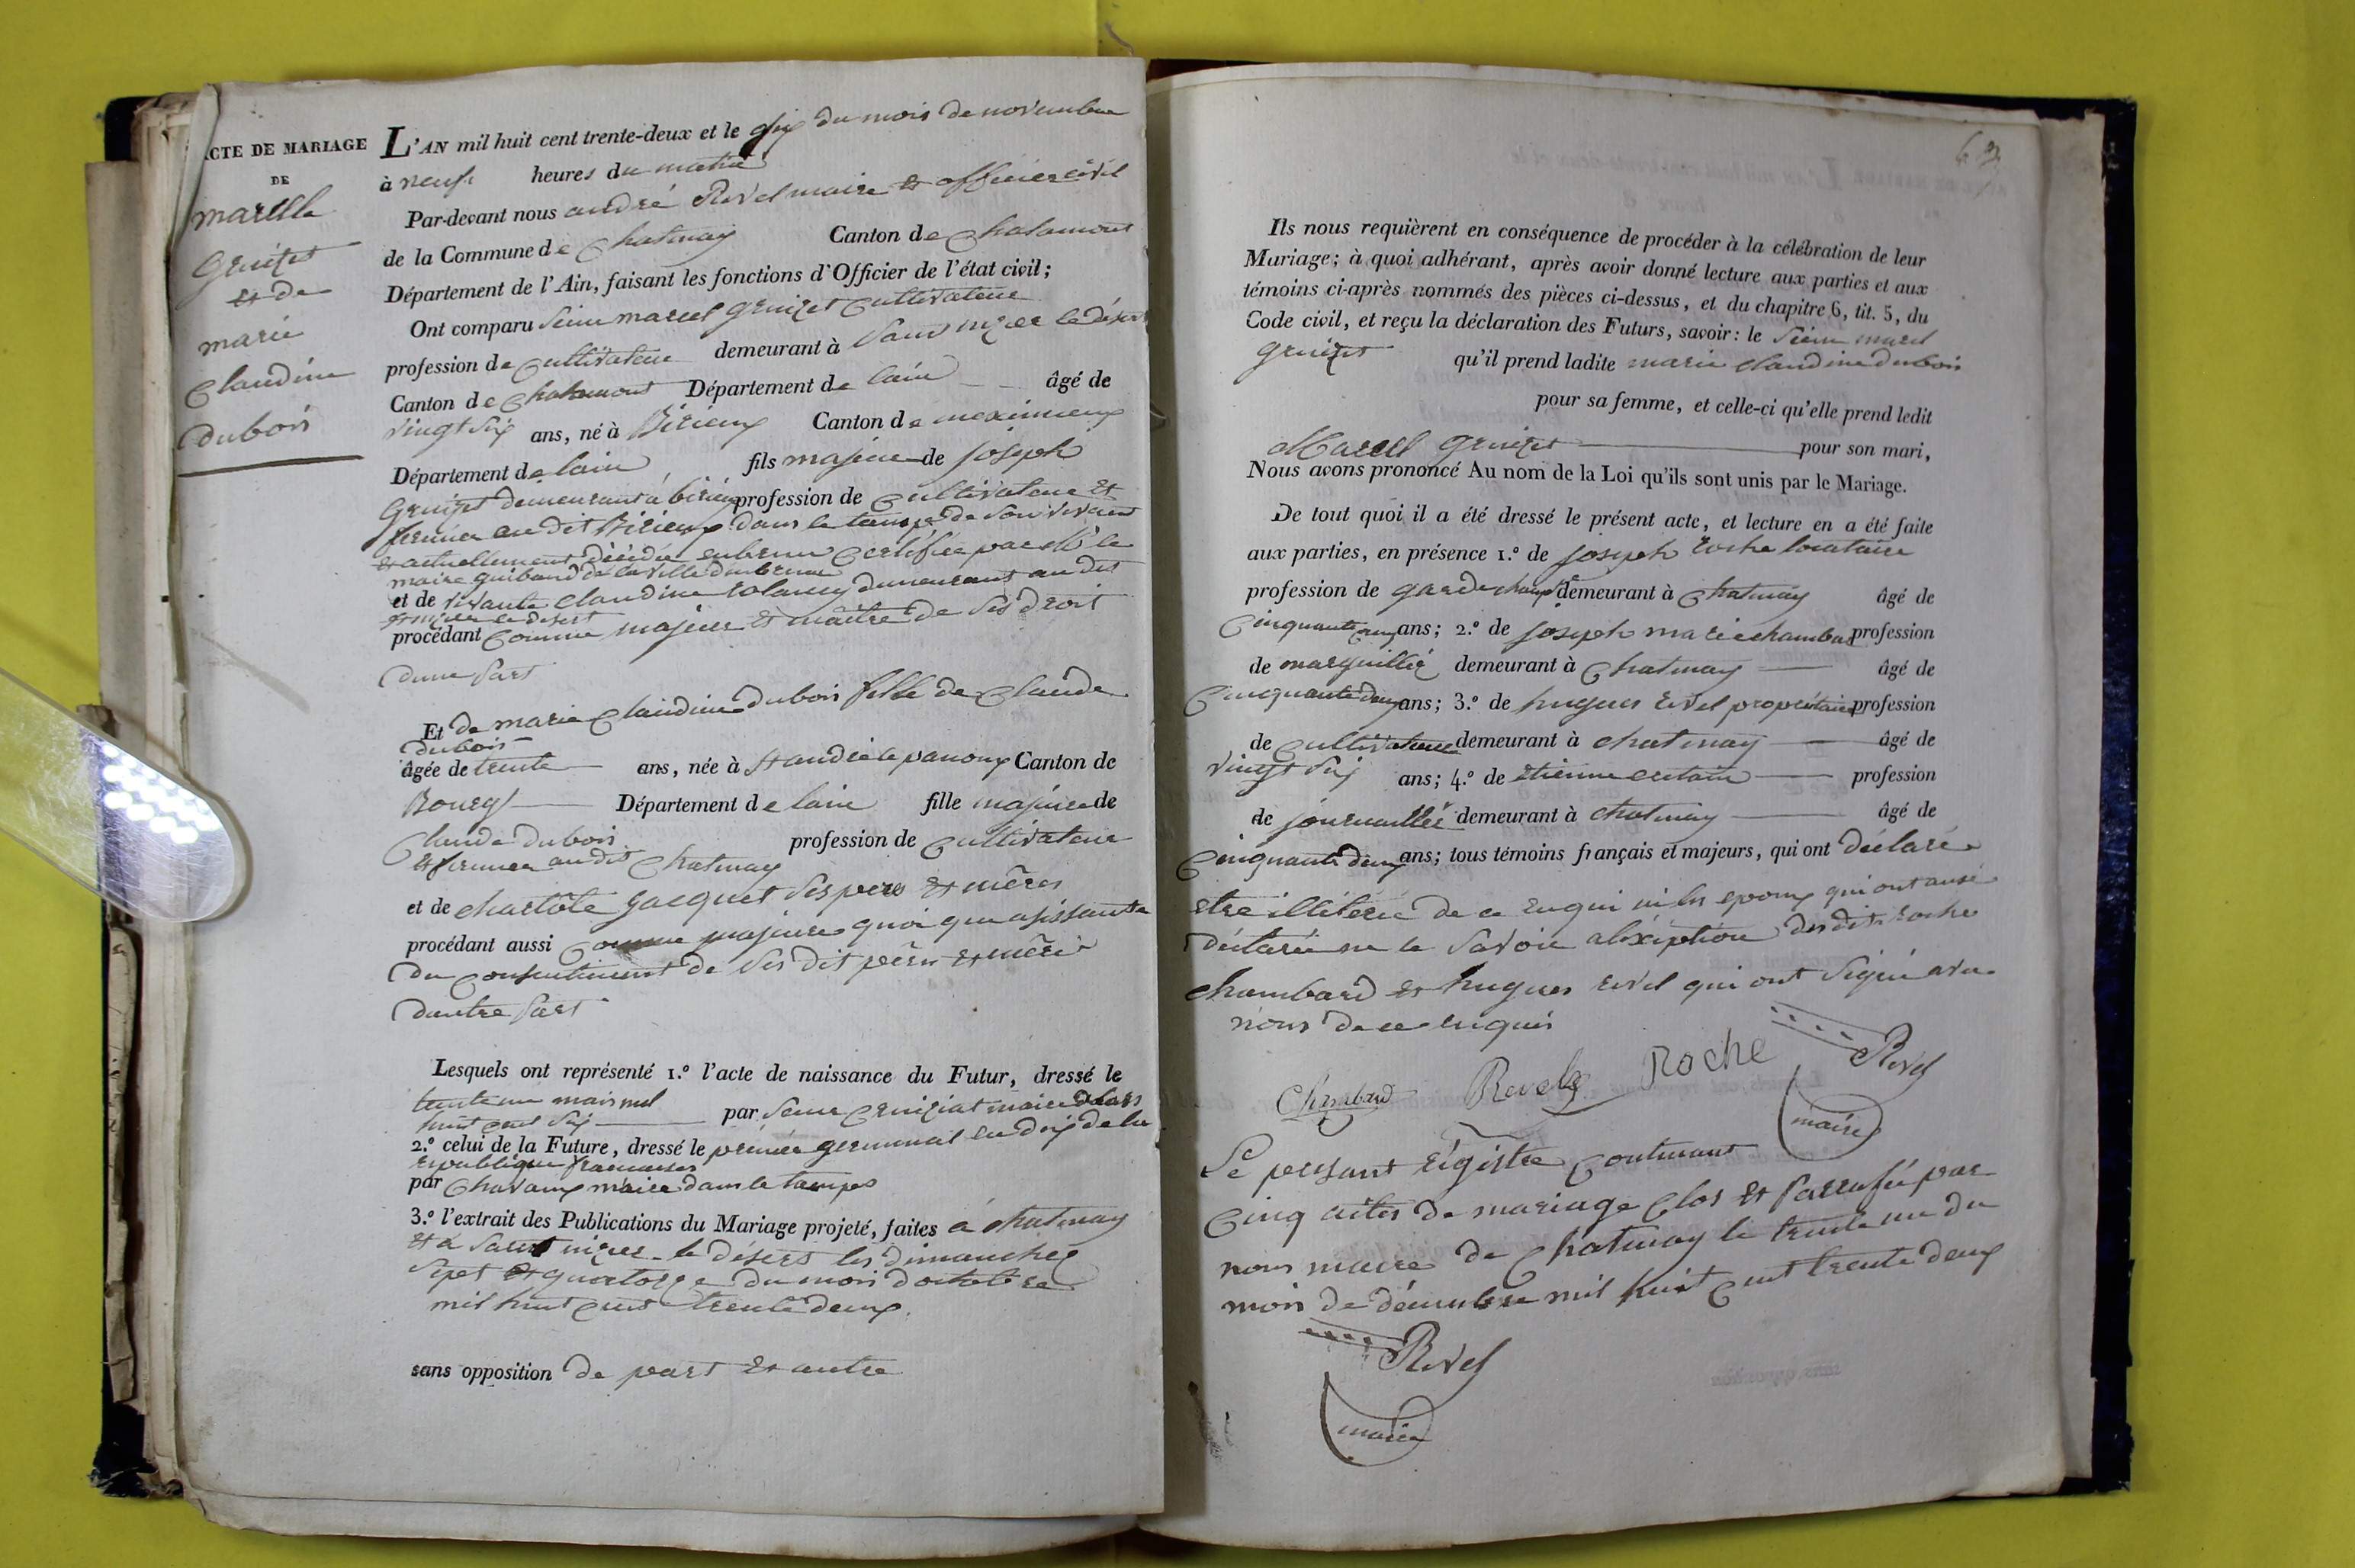 ACTE DE MARIAGE
DE
marclle
Gruizet
et de
marie
Claudine
dubois
L'AN mil huit cent trente-deux et le six du mois de novembre
à neuf heures du matin
Par-devant nous andré Revel maire et officier civil
de la Commune de Chatenay Canton de Chalamont
Département de l'Ain, faisant les fonctions d'Officier de l'état civil;
Ont comparu sieur marcel gruizet cultivateur
profession de cultivateur demeurant à Saint nizier le désert
Canton de Chalamont Département de lain âgé de
vingt six ans, né à Birieux Canton de meximieux
Département de lain fils majeur de joseph
Gruizet demeurant à birieux profession de cultivateur et
fermier au dit Birieux dans le temps de son vivant
et actuellement décédé certifiée par Mr le
maire guibaud de la ville
et de vivante claudine demeurant au dit
st nizier le désert
procédant comme majeur et maître de ses droit
dune part
Et de marie Claudine dubois fille de Claude
dubois
âgée de trente ans, née à st andré le panoux Canton de
Bourg Département de lain fille majeure de
Claude dubois profession de cultivateur
et fermier au dit Chatenay
et de charlote jacquet ses pere et mères
procédant aussi comme majeure quoi que asissante
du consentement de ses dit père et mère
dautre part
Lesquels ont représenté 1.º l'acte de naissance du Futur, dressé le
trente un mai mil
huit cent six par sieur maire
2.º celui de la Future, dressé le prémier germinal en dix de la
republique francaises
par Chavant maire dans le temps
3.º l'extrait des Publications du Mariage projeté, faites à chatenay
et à saint nizier le désert les dimanches
sept et quatorze du mois doctobre
mil huit cent trente deux.
sans opposition de part et autre
Ils nous requièrent en conséquence de procéder à la célébration de leur
Mariage; à quoi adhérant, après avoir donné lecture aux parties et aux
témoins ci-après nommés des pièces ci-dessus, et du chapitre 6, tit. 5, du
Code civil, et reçu la déclaration des Futurs, savoir: le sieur marcel
gruizet qu'il prend ladite marie claudine dubois
pour sa femme, et celle-ci qu'elle prend ledit
Marcel gruizet pour son mari,
Nous avons prononcé Au nom de la Loi qu'ils sont unis par le Mariage.
De tout quoi il a été dressé le présent acte, et lecture en a été faite
aux parties, en présence 1.º de joseph roche locataire
profession de garde champetre demeurant à Chatenay âgé de
Cinquante ans; 2.º de joseph marie chambard profession
de marguillié demeurant à Chatenay âgé de
Cinquante deux ans; 3.º de hugues revel propriétaire profession
de cultivateur demeurant à chatenay âgé de
vingt six ans; 4.º de étienne certain profession
de journallié demeurant à chatenay âgé de
Cinquante deux ans; tous témoins français et majeurs, qui ont déclaré
etre illétéré de ce enqui ni les epoux qui ont aussi
déclarée ne le savoir aléxéption desdits roche
chambard et hugues revel qui ont signé avec
nous de ce enquis
Chambard Revel Roche Revel
maire
Le present régistre contenant
Cinq actes de mariage clos et parrafé par
nous maire de Chatenay le trente un du
mois de décembre mil huit cent trente deux
Revel
maire